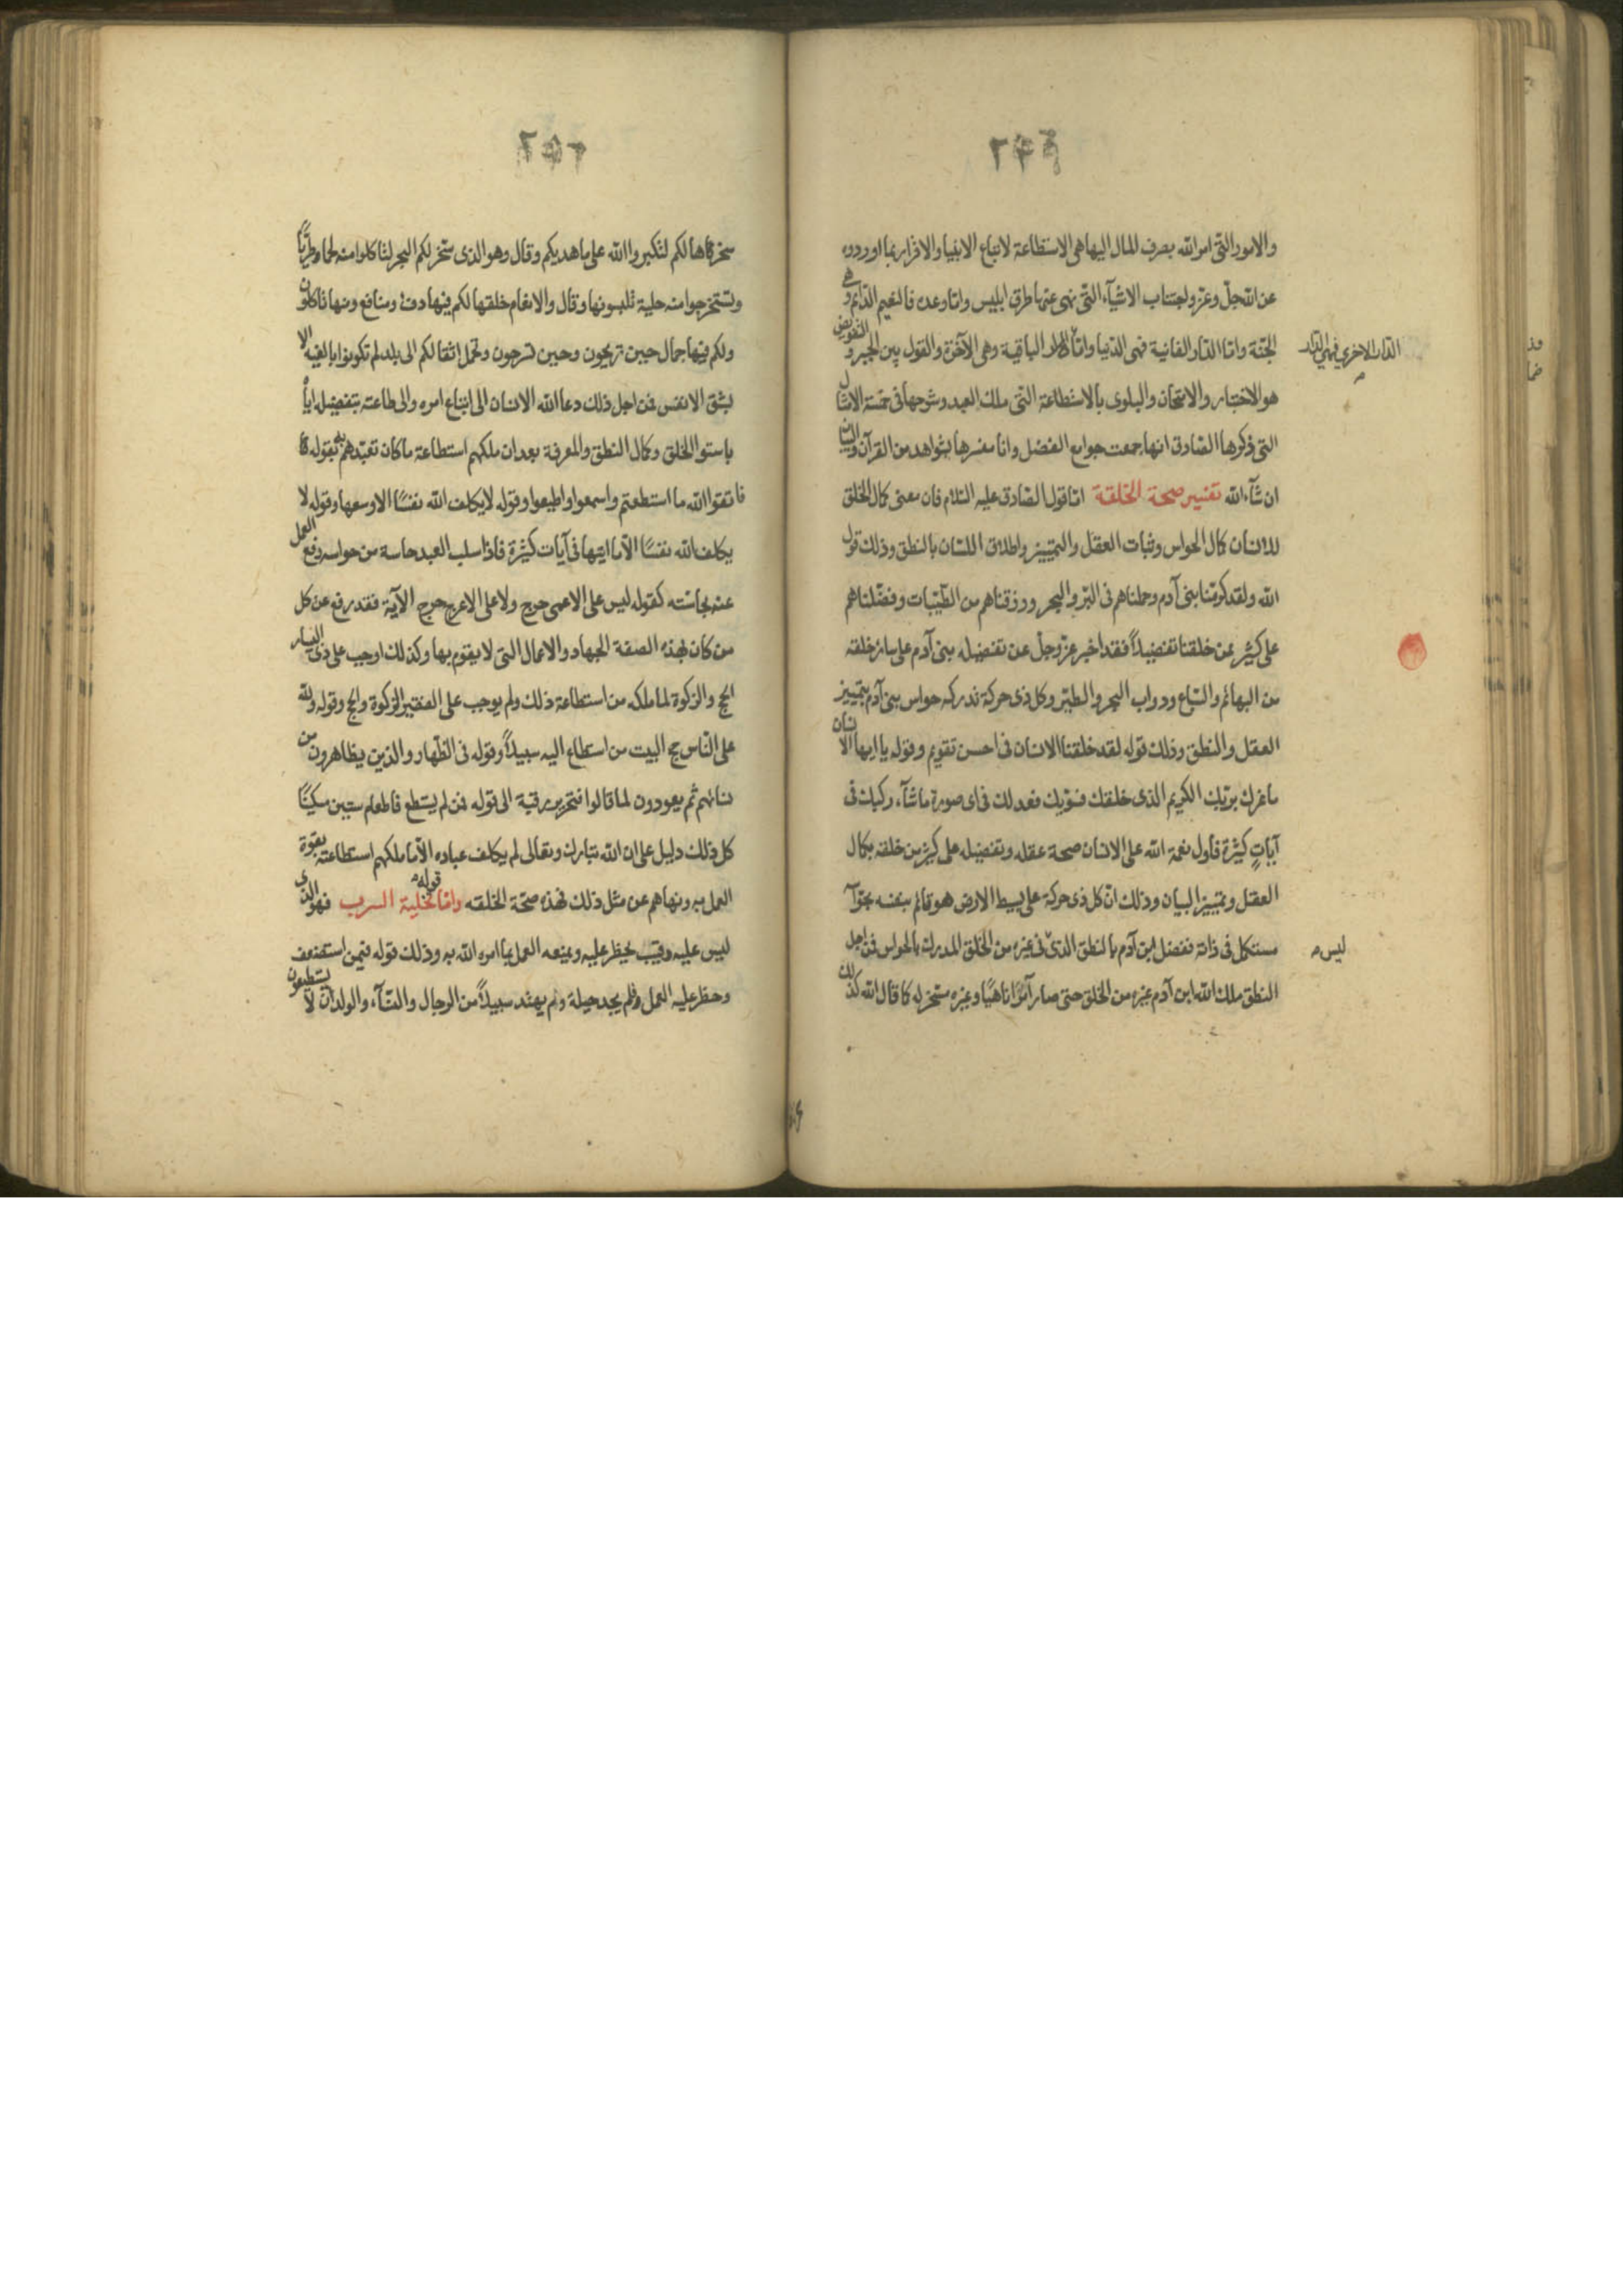 والامور التى امر الله بصرف المال اليها هى الاستطاعة لاتباع الانبيا والاقرار بما اوردوه
عن الله جل وعز واجتناب الاشيآء التى نهى عنها طرق ابليس واما وعده فالنعيم الدائم وهى
الجنة واما الدار الفانية فهى الدنيا واما الدار الباقية وهى الآخرة والقول بين الجبر والتفويض
الدار الاخرى فهى الدار
هو الاختبار والامتحان والبلوى بالاستطاعة التى ملك العبد وشرحها فى خمسة الامثال
التى ذكرها الصادق انها جمعت جوامع الفضل وانا مفسرها بشواهد من القرآن والبيان
ان شآء الله تفسير صحة الخلقة اما قول الصادق عليه السلام فان معنى كمال الخلق
للانسان كمال الحواس وثبات العقل والتمييز واطلاق اللسان بالنطق وذلك قول
الله ولقد كرمنا بنى آدم وحملناهم فى البر والبحر ورزقناهم من الطيبات وفضلناهم
على كثير ممن خلقنا تفضيلاً فقد اخبر عز وجل عن تفضيله بنى آدم على سائر خلقه
من البهائم والسباع ودواب البحر والطير وكل ذى حركة تدركه حواس بنى آدم بتمييز
العقل والنطق وذلك قوله لقد خلقنا الانسان فى احسن تقويم وقوله يا ايها الانسان
ما غرك بربك الكريم الذى خلقك فسويك فعدلك فى اى صورة ما شآء ركبك فى
آياتٍ كثيرة فاول نعمة الله على الانسان صحة عقله وتفضيله على كثير من خلقه بكمال
العقل وتمييز البيان وذلك ان كل ذى حركة على بسيط الارض هو قائم بنفسه بحواسه
مستكمل فى ذاته ففضل ابن آدم بالنطق الذى فى غيره من الخلق المدرك بالحواس فمن اجل
ليس
النطق ملك الله ابن آدم غيره من الخلق حتى صار آمرًا ناهيًا وغيره مسخر له كما قال الله كذلك
سخرناها لكم لتكبروا الله على ما هديكم وقال وهو الذى سخر لكم البحر لتاكلوا منه لحما طريًّا
وتستخرجوا منه حلية تلبسونها وقال والانعام خلقها لكم فيها دفء ومنافع ومنها تاكلون
ولكم فيها جمال حين تريحون وحين تسرحون وتحمل اثقالكم الى بلد لم تكونوا بالغيه الا
بشق الانفس فمن اجل ذلك دعا الله الانسان الى اتباع امره والى طاعته بتفضيله اياه
باستوا الخلق وكمال النطق والمعرفة بعد ان ملكهم استطاعة ما كان تعبدهم به بقوله
فاتقوا الله ما استطعتم واسمعوا واطيعوا وقوله لا يكلف الله نفسًا الا وسعها وقوله لا
يكلف الله نفسًا الا ما اتيها فى آيات كثيرة فاذا سلب العبد حاسة من حواسه رفع العمل
عنه بحاسته كقوله ليس على الاعمى حرج ولا على الاعرج حرج الآية فقد رفع عن كل
من كان بهذه الصفة الجهاد والاعمال التى لا يقوم بها وكذلك اوجب على ذى اليسار
الحج والزكوة لما ملكه من استطاعة ذلك ولم يوجب على الفقير الزكوة والحج وقوله ولله
على الناس حج البيت من استطاع اليه سبيلاً وقوله فى الظهار والذين يظاهرون من
نسائهم ثم يعودون لما قالوا فتحرير رقبة الى قوله فمن لم يستطع فاطعام ستين مسكينًا
كل ذلك دليل على ان الله تبارك وتعالى لم يكلف عباده الا ما ملكهم استطاعته بقوة
العمل به ونهاهم عن مثل ذلك فهذه صحة الخلقه واما قوله تخلية السرب فهو الذى
ليس عليه رقيب يحظر عليه ويمنعه العمل بما امره الله به وذلك قوله فيمن استضعف
وحظر عليه العمل فلم يجد حيلة ولم يهتد سبيلاً من الرجال والنسآء والولدان لا يستطيعون